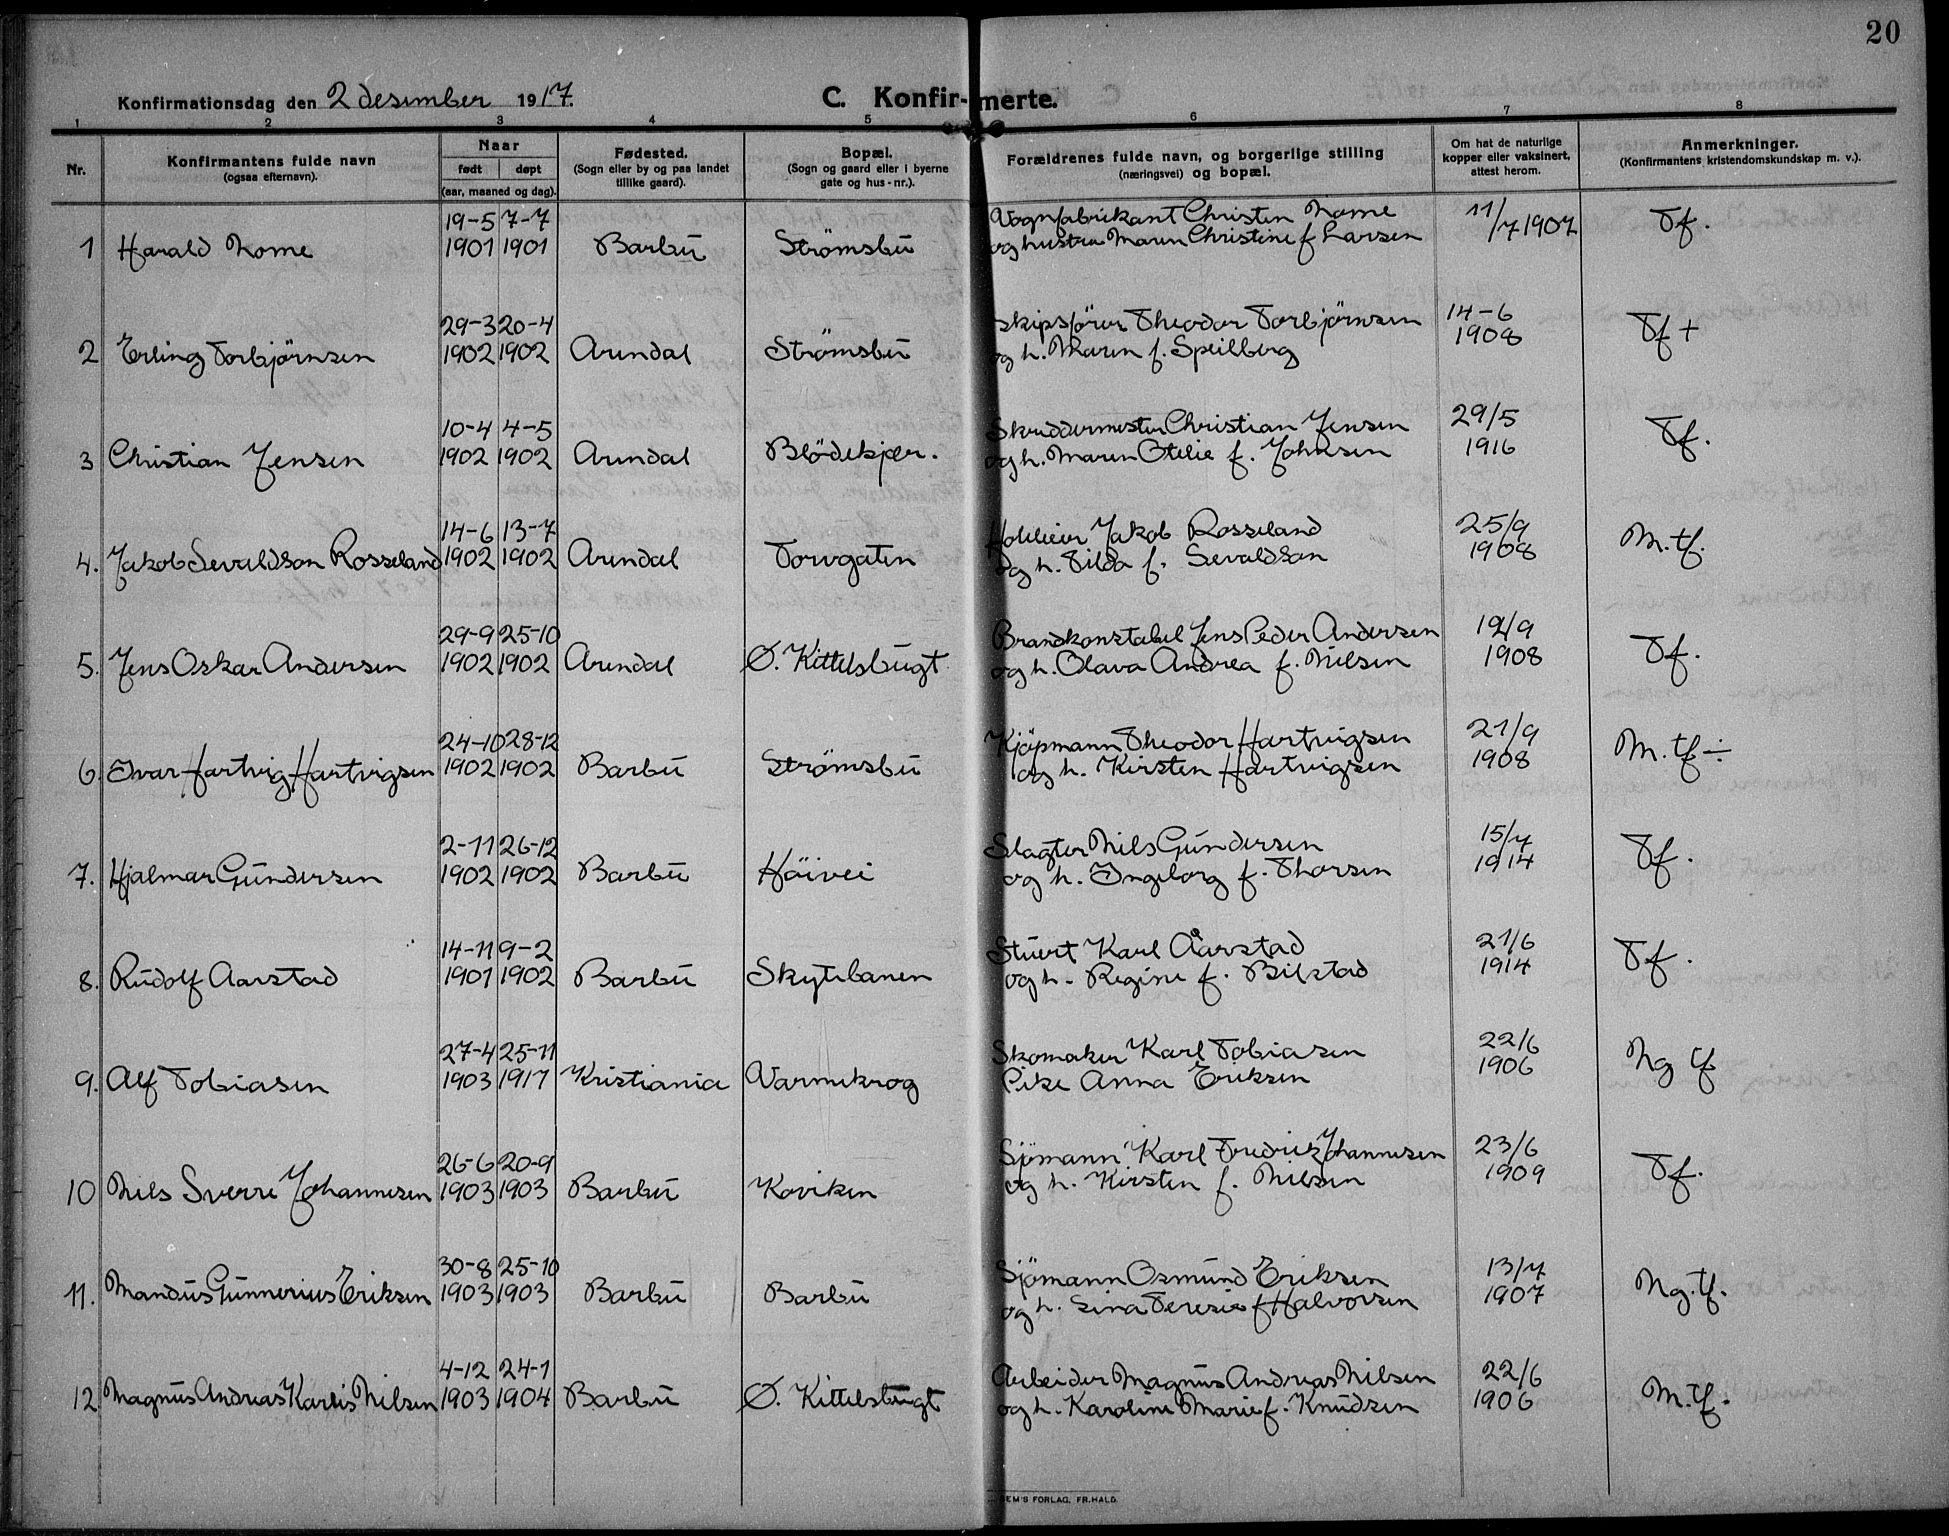 20
Konfirmationsdag den 2 desember 1917.
C. Konfir-merte.
1 2 3 4 5 6 7 8
Nr.
Konfirmantens fulde navn
(ogsaa efternavn).
Naar
født døpt
(aar, maaned og dag).
Fødested.
(Sogn eller by og paa landet
tillike gaard).
Bopæl.
(Sogn og gaard eller i byerne
gate og hus-nr.).
Forældrenes fulde navn, og borgerlige stilling
(næringsvei) og bopæl.
Om hat de naturlige
kopper eller vaksinert,
attest herom.
Anmerkninger.
(Konfirmantens kristendomskundskap m. v.).
19-5 7-7 Vognfabrikant Christen Nome 11/7 1907 Tf.
1 Harald Nome 1901 1901 Barbu Strømsbu og hustru Maren Christine f. Larsen
29-3 20-4 Skipsfører Theodor Torbjørnsen 14-6 Tf +
2 Erling Torbjørnsen 1902 1902 Arendal Strømsbu og h. Maren f. Speilberg 1908
10-4 4-5 Skreddermester Christian Jensen 29/5 Tf.
3 Christian Jensen 1902 1902 Arendal Blødekjær. og h. Maren Otelie f. Johnsen 1916
14-6 13-7 Jakob Rosseland 25/9 M.tf.
4. Jakob Sevaldson Rosseland 1902 1902 Arendal Torvgaten og h. Tilda f. Sevaldson 1908
29-9 25-10 Brandkonstabel Jens Peder Andersen Tf.
5. Jens Oskar Andersen 1902 1902 Arendal Ø. Kittelsbugt og h. Olava Andrea f. Nilsen 1908
24-10 28-12 Kjøpmann Theodor Hartvigsen 21/9 M.tf ÷
6. Ivar Hartvig Hartvigsen 1902 1902 Barbu Strømsbu og h. Kirsten Hartvigsen 1908
2-11 26-12 Slagter Nils Gundersen 15/7 Tf.
7. Hjalmar Gundersen 1902 1902 Barbu Høivei og h. Ingeborg f. Thorsen 1914
14-11 9-2 Stuert Karl Aarstad 21/6 Tf.
8. Rudolf Aarstad 1901 1902 Barbu Skytebanen og h. Regine f. Bilstad 1914
27-4 25-11 Skomaker Karl Tobiasen 22/6 Ng tf
9. Alf Tobiasen 1903 1917 Kristiania Varmekrog Pike Anna Eriksen 1906
26-6 20-9 Sjømann Karl Fredrik Johannesen 23/6 Tf.
10 Nils Sverre Johannesen 1903 1903 Barbu Koviken og h. Kirsten f. Nilsen 1909
30-8 25-10 Sjømann Osmund Eriksen 13/7 Ng.tf.
11. Mandus Gunnerius Eriksen 1903 1903 Barbu Barbu og h. Sina Teresie f Halvorsen 1907
4-12 24-1 Arbeider Magnus Andreas Nilsen 22/6 M.tf.
12 Magnus Andreas Karlis Nilsen 1903 1904 Barbu Ø. Kittelsbugt og h. Karoline Marie f. Knudsen 1906
SEM'S FORLAG, FR.HALD.